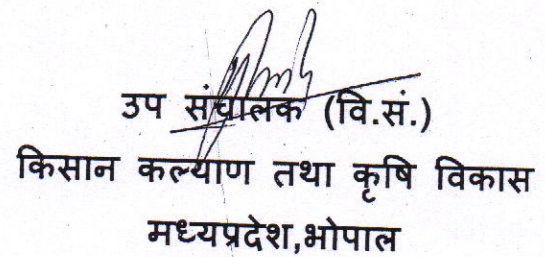 उप संचालक (वि.सं.)
किसान कल्याण तथा कृषि विकास
मध्यप्रदेश,भोपाल